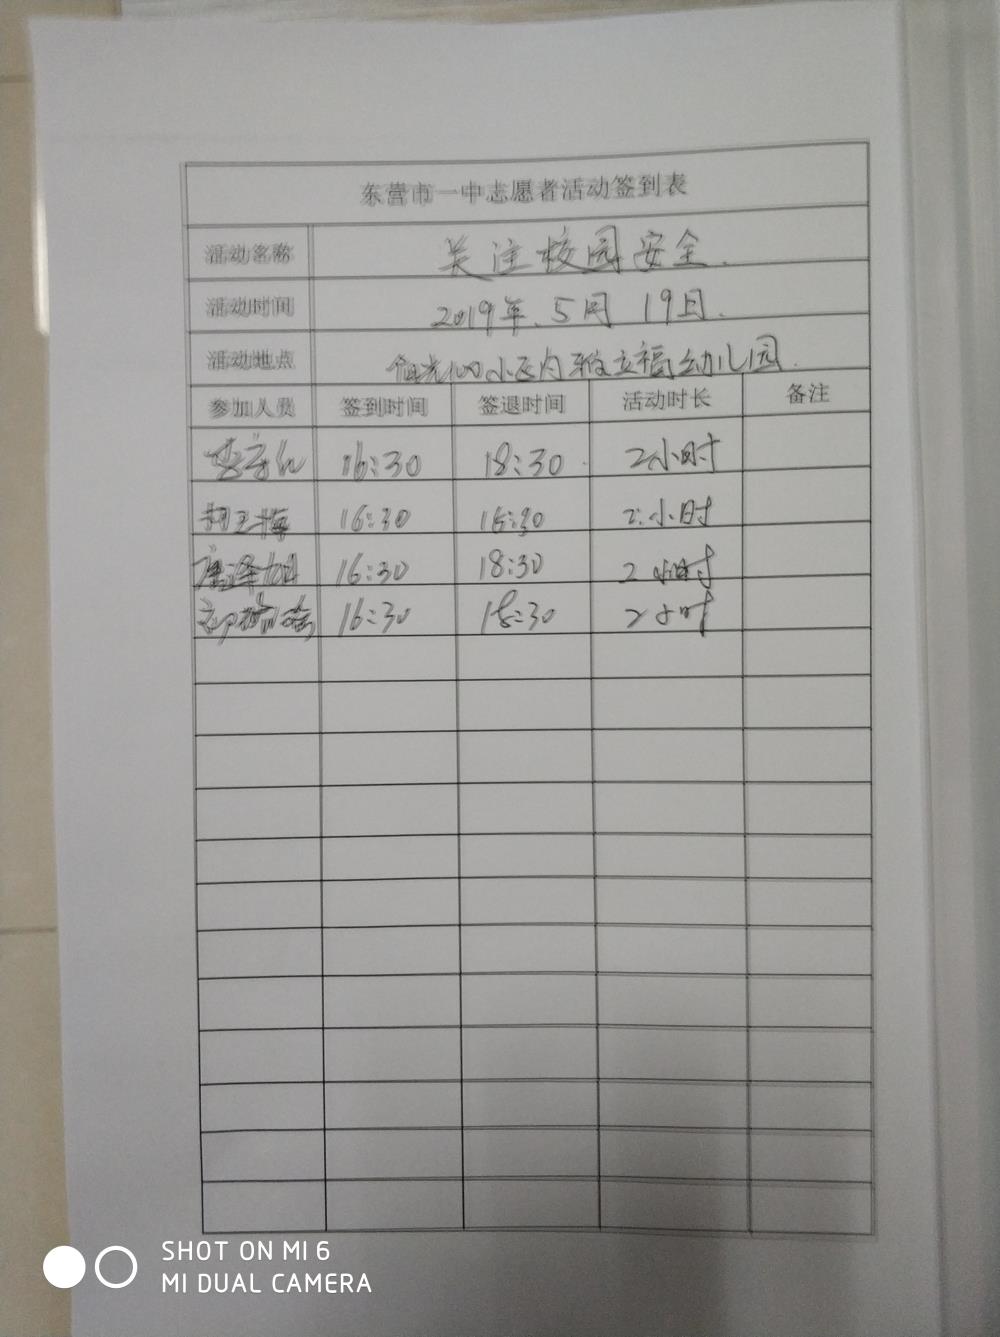 东营市一中志愿者活动签到表
活动名称 关注校园安全.
活动时间 2019年.5月19日.
活动地点 阳光100小区内雅立福幼儿园.
参加人员 签到时间 签退时间 活动时长 备注
16:30 18:30 2小时
16:30 18:30 2小时
唐泽旭 16:30 18:30 2小时
16:30 18:30 2小时
SHOT ON MI 6
MI DUAL CAMERA